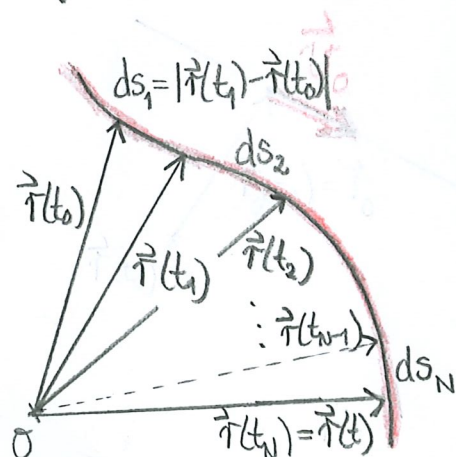 ds₁=|r⃗(t₁)-r⃗(t₀)|
ds₂
r⃗(t₀)
r⃗(t₁)
r⃗(t₂)
⋮
r⃗(t_{N-1})
ds_N
O
r⃗(t_N)=r⃗(t)